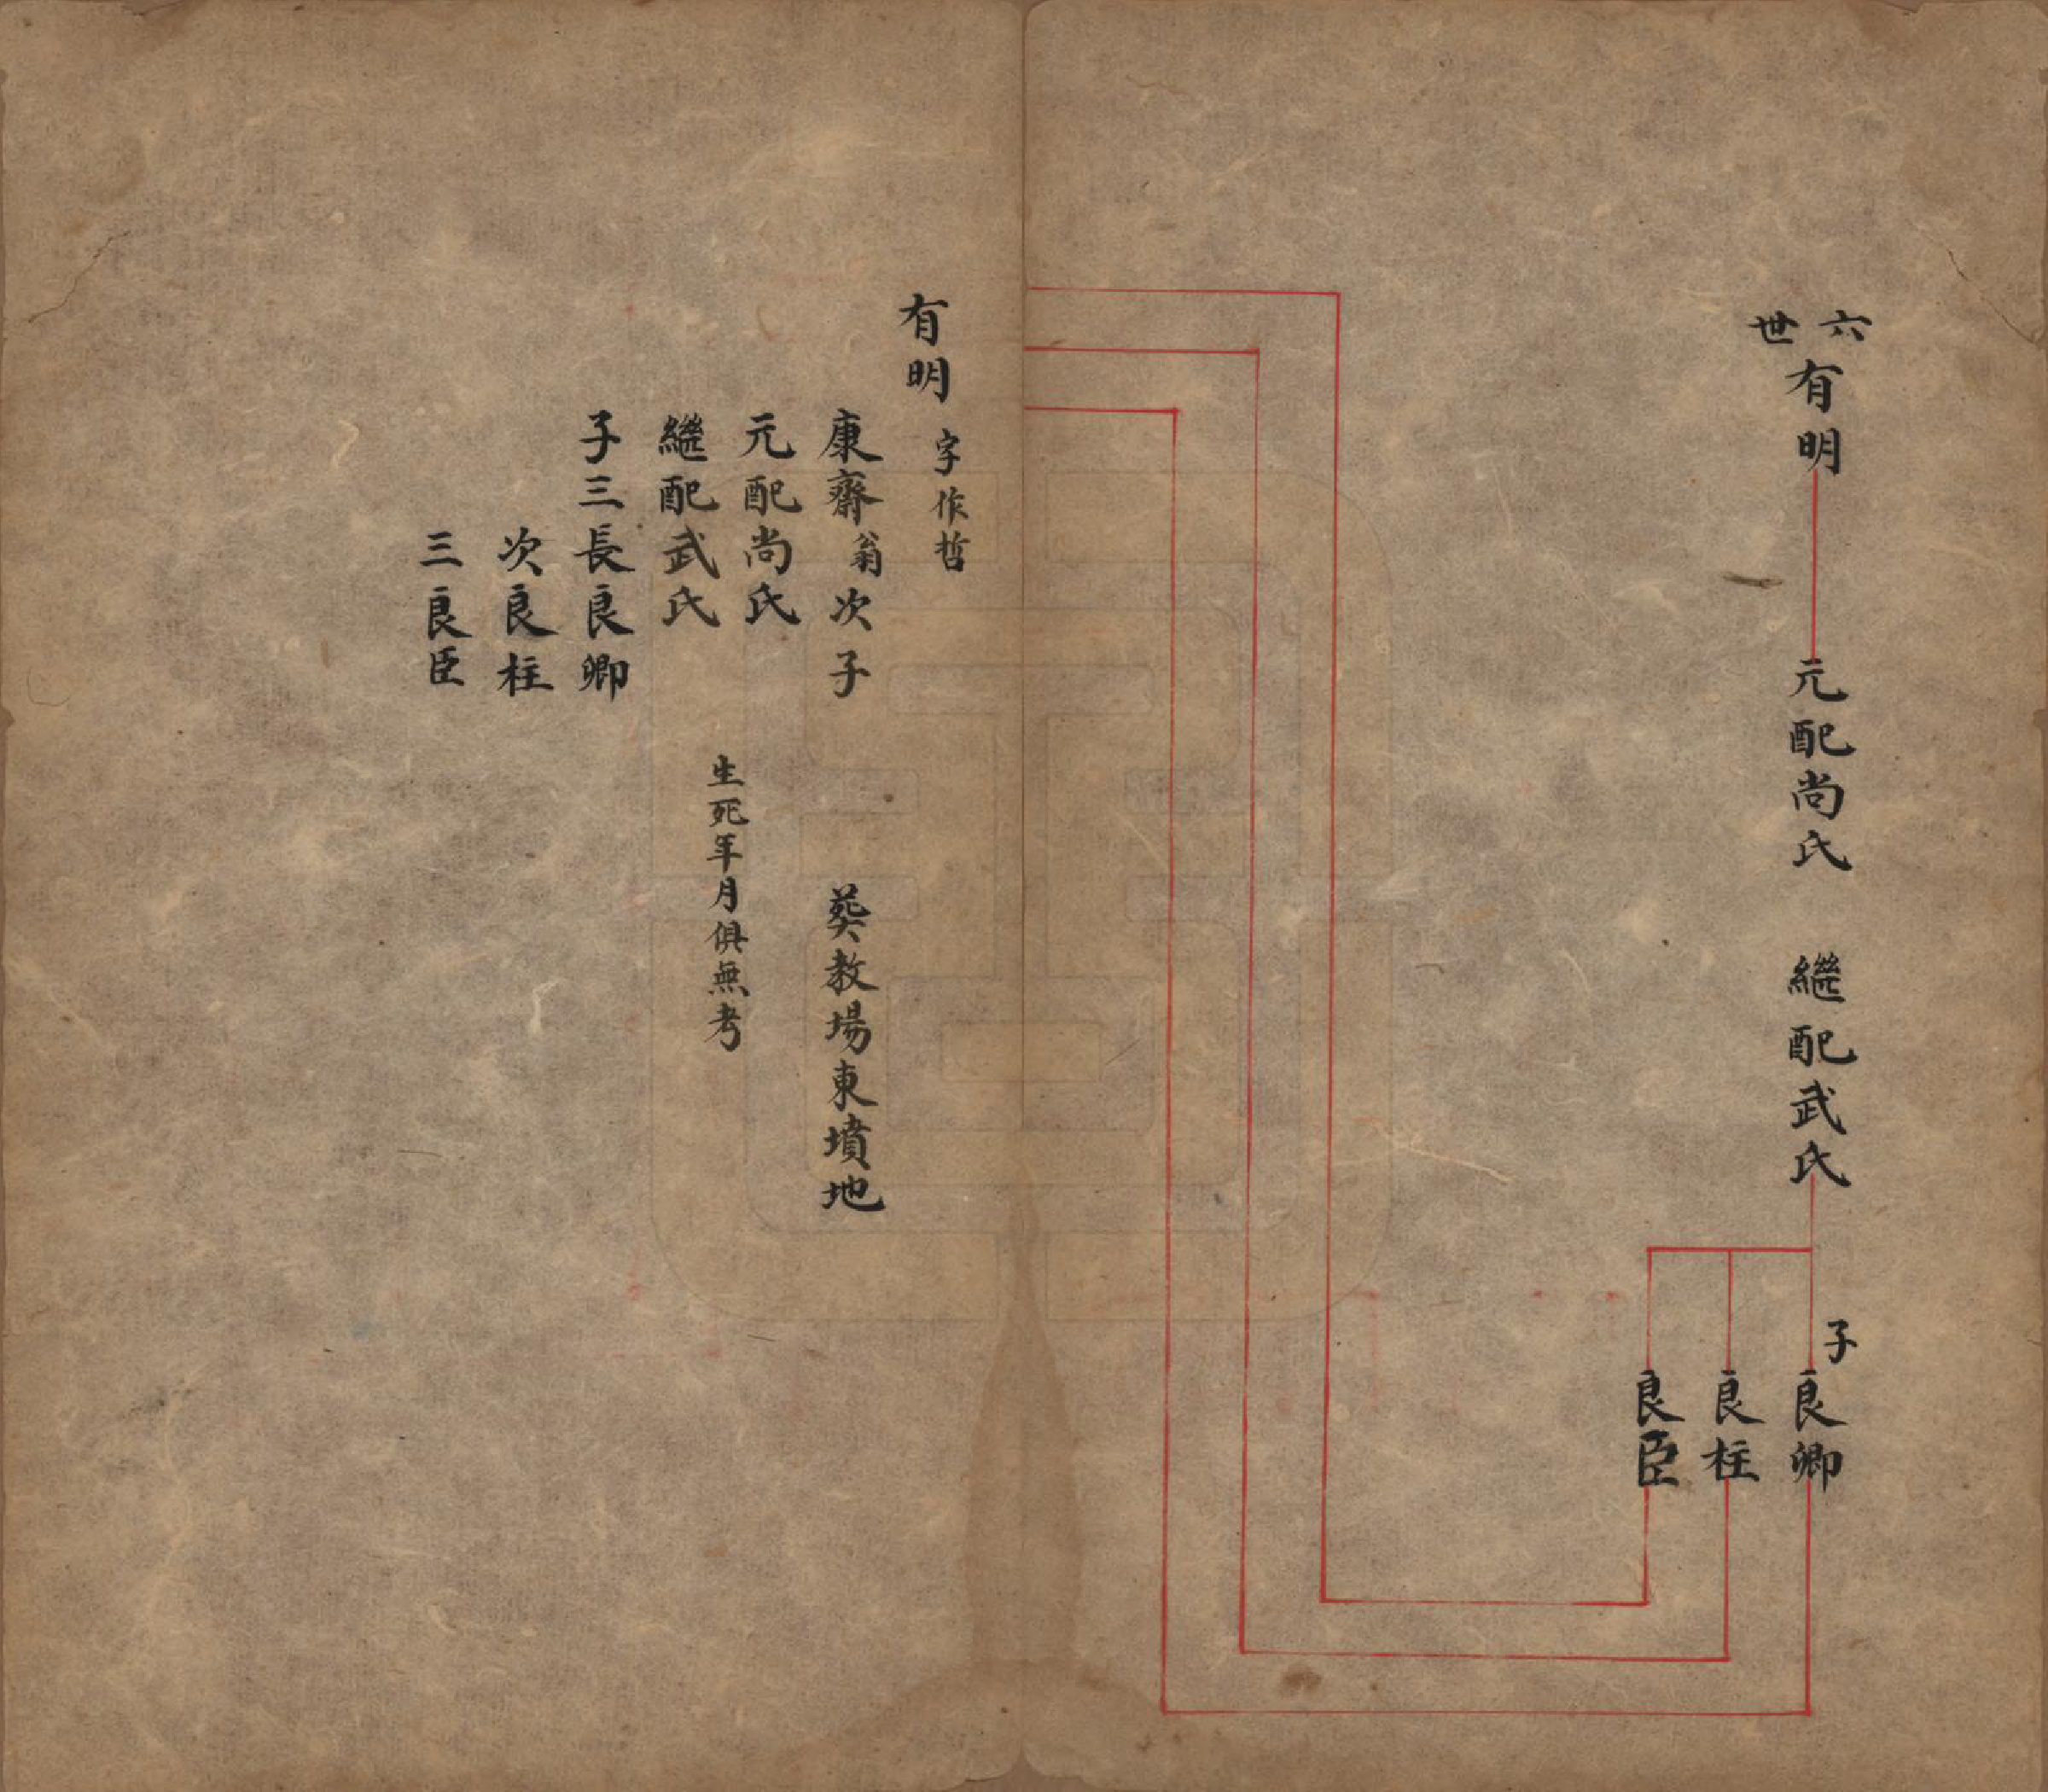 六世
有明 元配尚氏 繼配武氏
子
良卿
良柱
良臣
有明 字作哲
康齋翁次子 葬教場東墳地
元配尚氏
生死年月俱無考
繼配武氏
子三長良卿
次良柱
三良臣